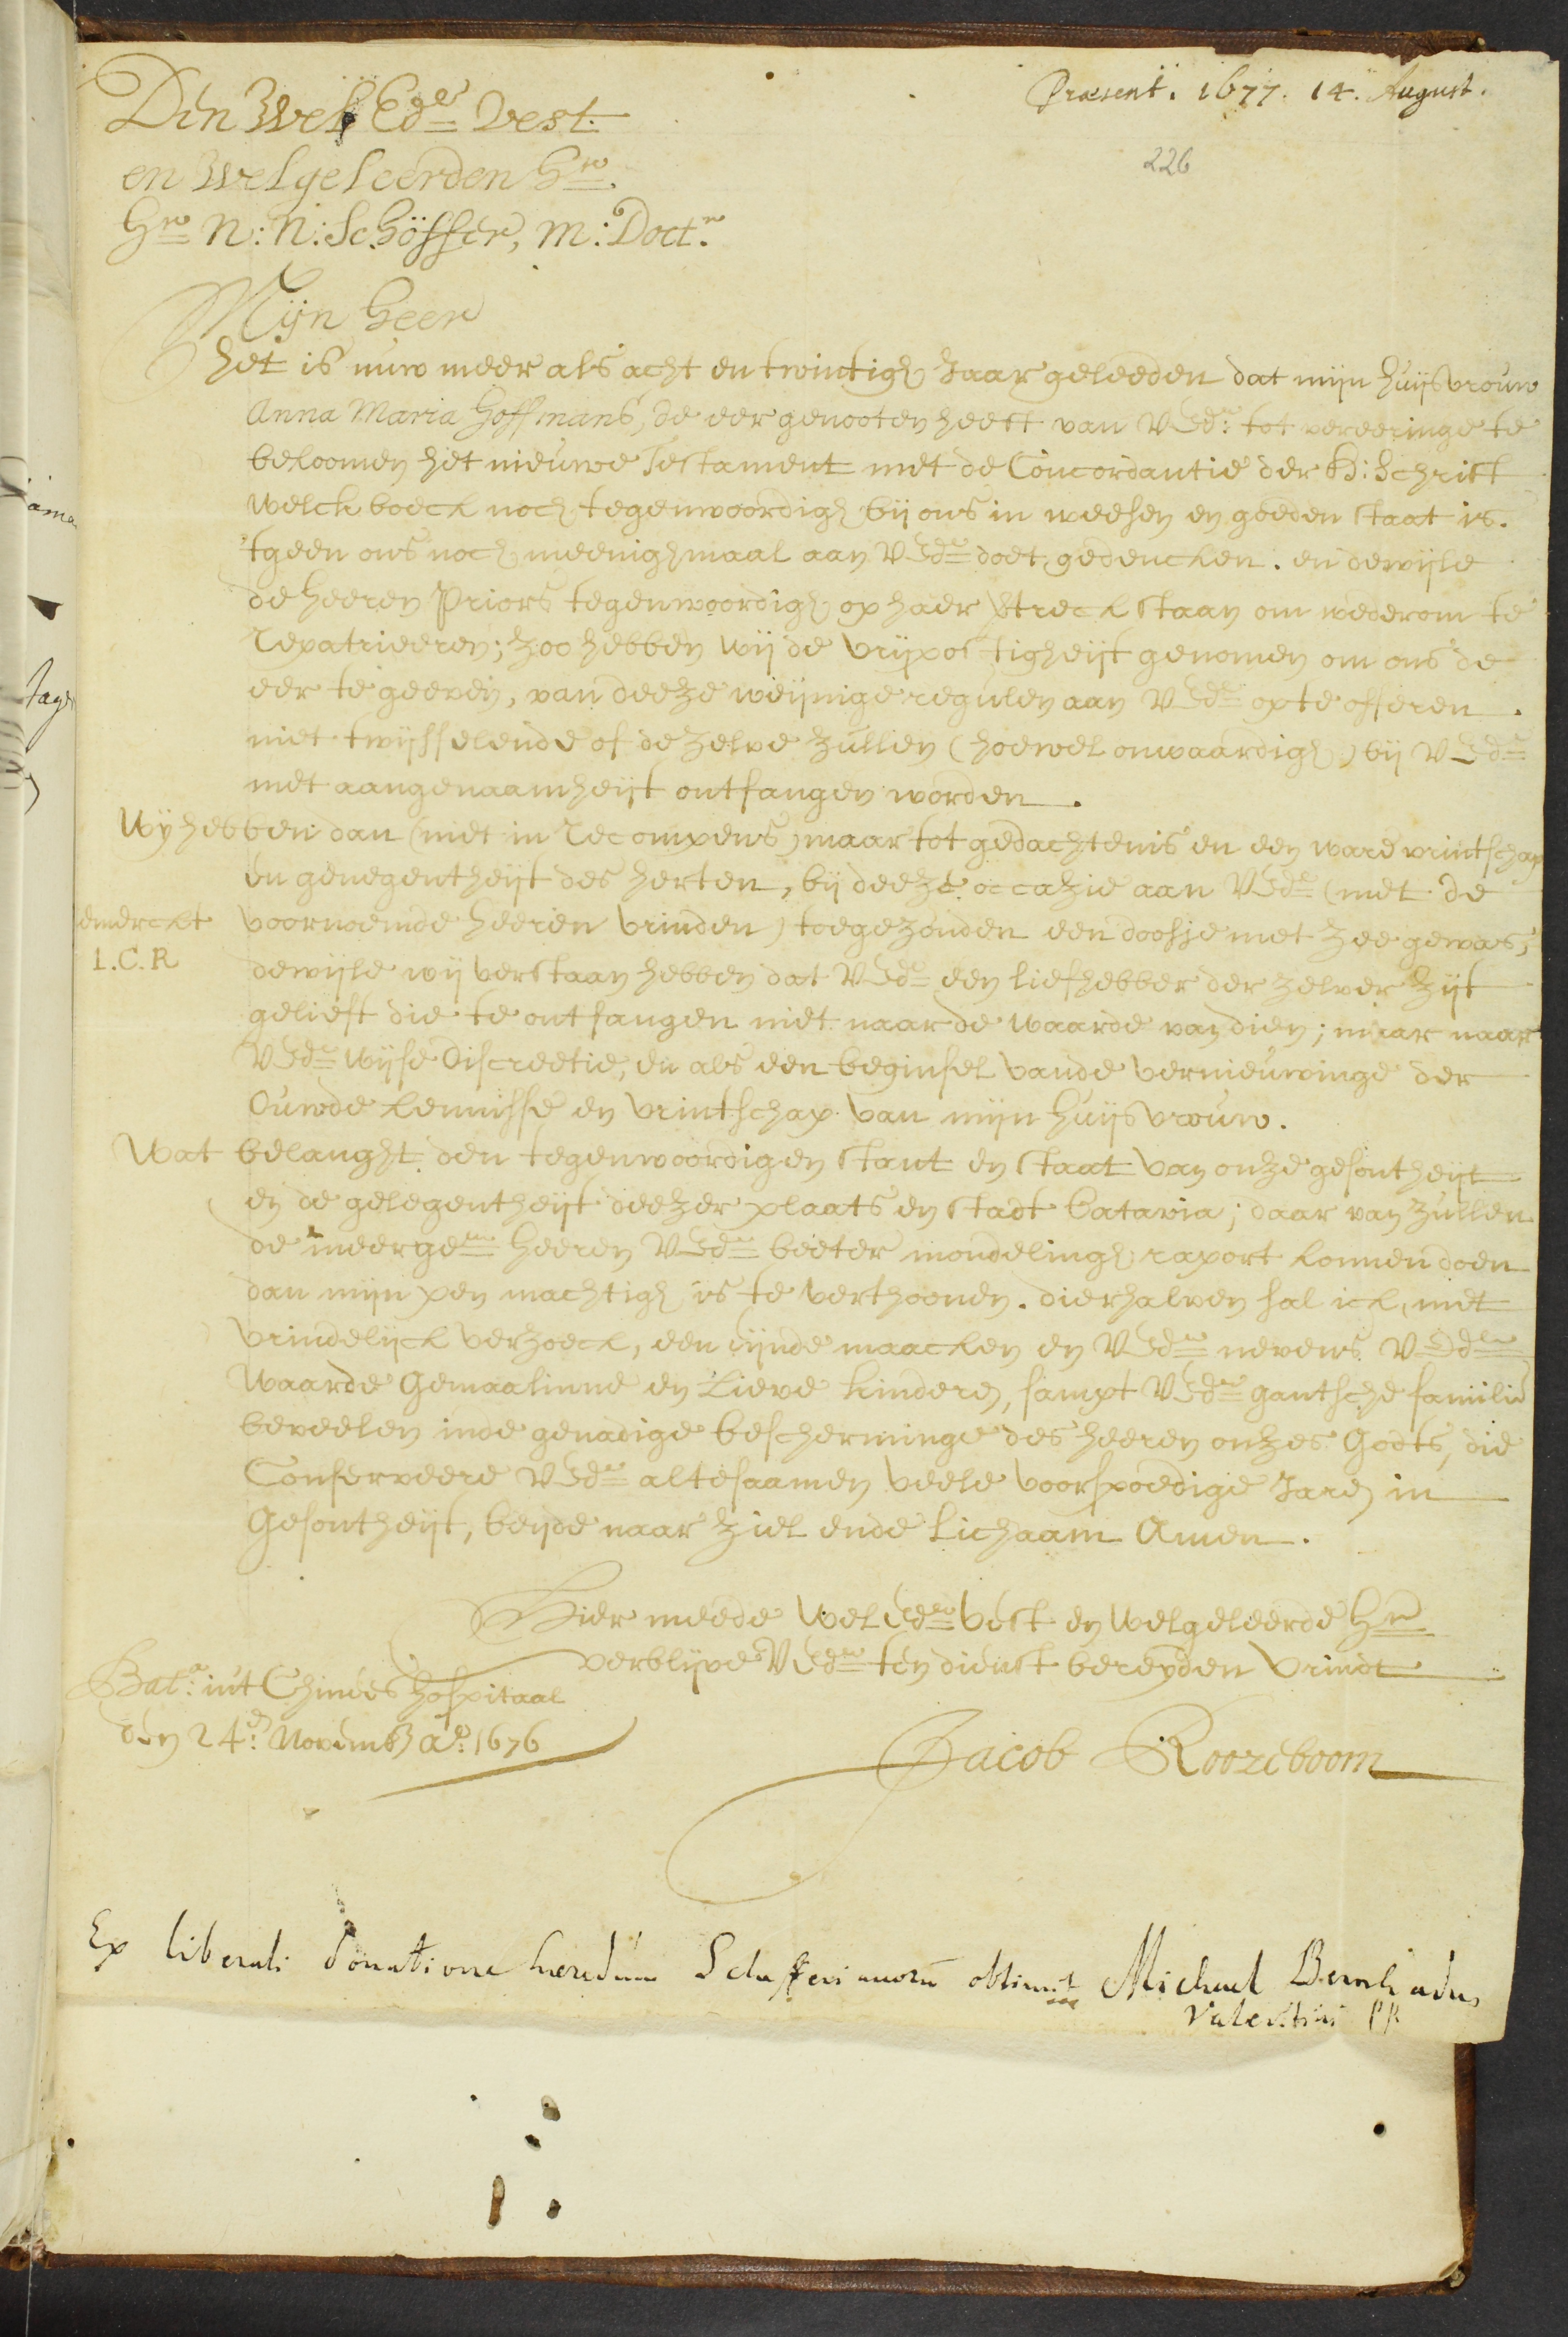 Præsent. 1677. 14. August.
226
Den Wel Ed<sup>le</sup> Vest
en Welgeleerden H<sup>re</sup>.
H<sup>re</sup> N: N: Schöffer, M: Doct<sup>r</sup>.
Mijn Heer
het is nuw meer als acht en twintigh Jaar geleeden dat mijn huijsvrouw
Anna Maria Hoffmans, de eer genooten heeft van VEd<sup>e</sup>: tot vereeringe te
bekoomen het nieuwe Testament met de Concordantie der H: Schrift
welck boeck noch tegenwoordigh bij ons in weesen en goeden staat is.
tgeen ons noch meenighmaal aan VEd<sup>e</sup> doet gedencken. en dewijle
de Heeren Priors tegenwoordigh op haer vtreck staan om wederom te
repatrieeren; zoo hebben wij de vrijpostigheijt genomen om ons de
eer te geeven, van deeze weijnige regulen aan VEd<sup>e</sup> op te offeren.
niet twijffelende of de zelve zullen (hoewel onwaardigh) bij VEd<sup>e</sup>
met aangenaamheijt ontfangen worden.
Wij hebben dan (niet in recompens) maar tot gedachtenis en een ware vrintschap
en genegentheijt des herten, bij deeze occazie aan VEd<sup>e</sup> (met de
emerckt voornoemde heeren vrinden) toegezonden een doosje met zee gewas;
I.C.R dewijle wij verstaan hebben dat VEd<sup>e</sup> een liefhebber der zelver zijt
gelieft die te ontfangen niet naar de waarde van dien; maar naar
VEd<sup>e</sup> wijse Discreetie, en als een beginsel vande vernieuwinge der
Ouwde kennisse en vrintschap van mijn huijsvrouw.
Wat belanght den tegenwoordigen stant en staat van onze gesontheijt
en de gelegentheijt deezer plaats en stadt Batavia; daar van zullen
de meerge<sup>me</sup> Heeren VEd<sup>e</sup> beeter mondelingh raport konnen doen
dan mijn pen machtigh is te verthoonen. dierhalven sal ick, met
vrindelijck verzoeck, een eijnde maacken en VEd<sup>e</sup> nevens VEd<sup>le</sup>
Waarde Gemaalinne en Lieve kinderen, sampt VEd<sup>e</sup> gantsche familie
beveelen inde genadige bescherminge des heeren onzes Godts, die
Conserveere VEd<sup>e</sup> altesaamen veele voorspoedige Jaren in
Gesontheijt, beijde naar ziel ende Lichaam Amen.
Hier meede Wel Ed<sup>le</sup> Vest en Welgeleerde H<sup>re</sup>
verblijve VEd<sup>e</sup> ten dienst bereyden Vrindt
Bat<sup>a</sup>: int Chinees Hospitaal
den 24<sup>e</sup>: Novemb A<sup>o</sup>: 1676
Jacob Roozeboom
Ex liberali donatione heredum Schefferianorū obtinuit Michael Bernhardus
Valentini PP.